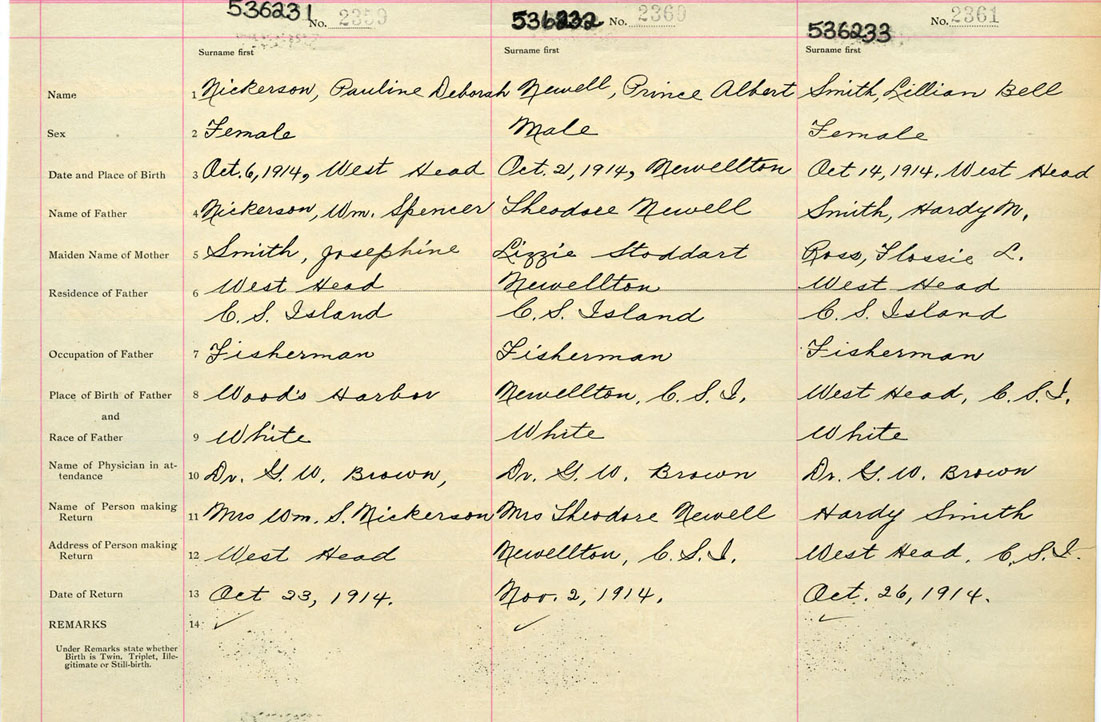 536231 No. 2359 536232 No. 2360 536233 No. 2361
Surname first Surname first Surname first
Name 1 Nickerson, Pauline Deborah Newell, Prince Albert Smith, Lillian Bell
Sex 2 Female Male Female
Date and Place of Birth 3 Oct. 6, 1914, West Head Oct. 2, 1914, Newellton Oct 14, 1914. West Head
Name of Father 4 Nickerson, Wm. Spencer Theodore Newell Smith, Hardy M.
Maiden Name of Mother 5 Smith, Josephine Lizzie Stoddart Ross, Flossie L.
Residence of Father 6 West Head Newellton West Head
C. S. Island C. S. Island C. S. Island
Occupation of Father 7 Fisherman Fisherman Fisherman
Place of Birth of Father 8 Wood's Harbor Newellton, C. S. I. West Head, C. S. I.
and
Race of Father 9 White White White
Name of Physician in at-
tendance 10 Dr. G. W. Brown, Dr. G. W. Brown Dr. G. W. Brown
Name of Person making
Return 11 Mrs Wm. S. Nickerson Mrs Theodore Newell Hardy Smith
Address of Person making
Return 12 West Head Newellton, C. S. I. West Head, C. S. I.
Date of Return 13 Oct 23, 1914. Nov. 2, 1914. Oct. 26, 1914.
REMARKS 14
Under Remarks state whether
Birth is Twin, Triplet, Ille-
gitimate or Still-birth.